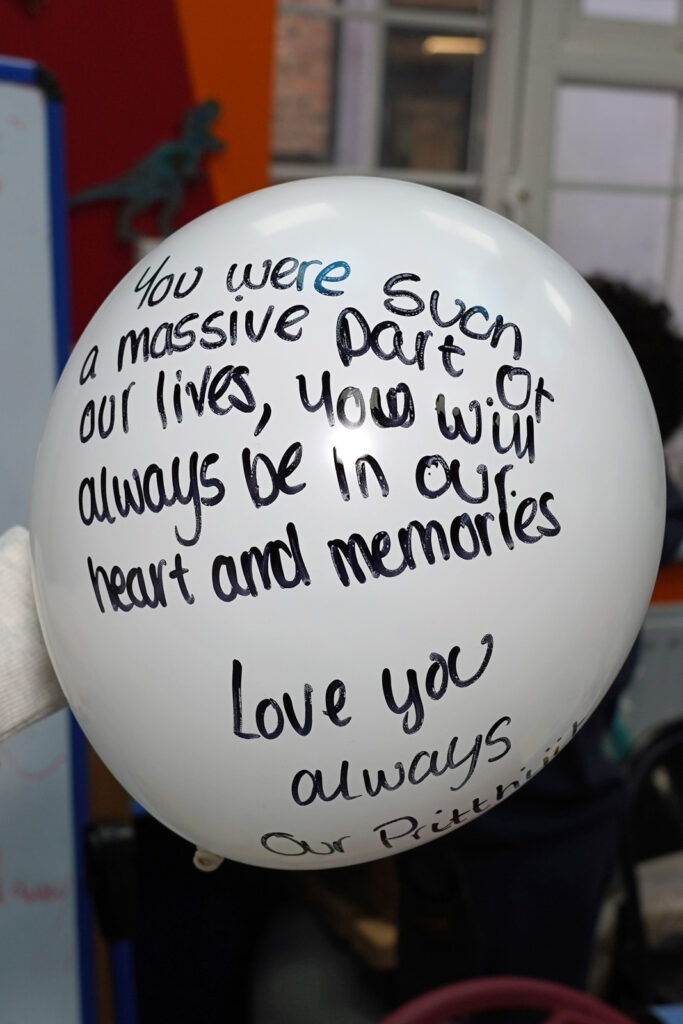 You were such
a massive part of
our lives, you will
always be in our
heart and memories
Love you
always
Our